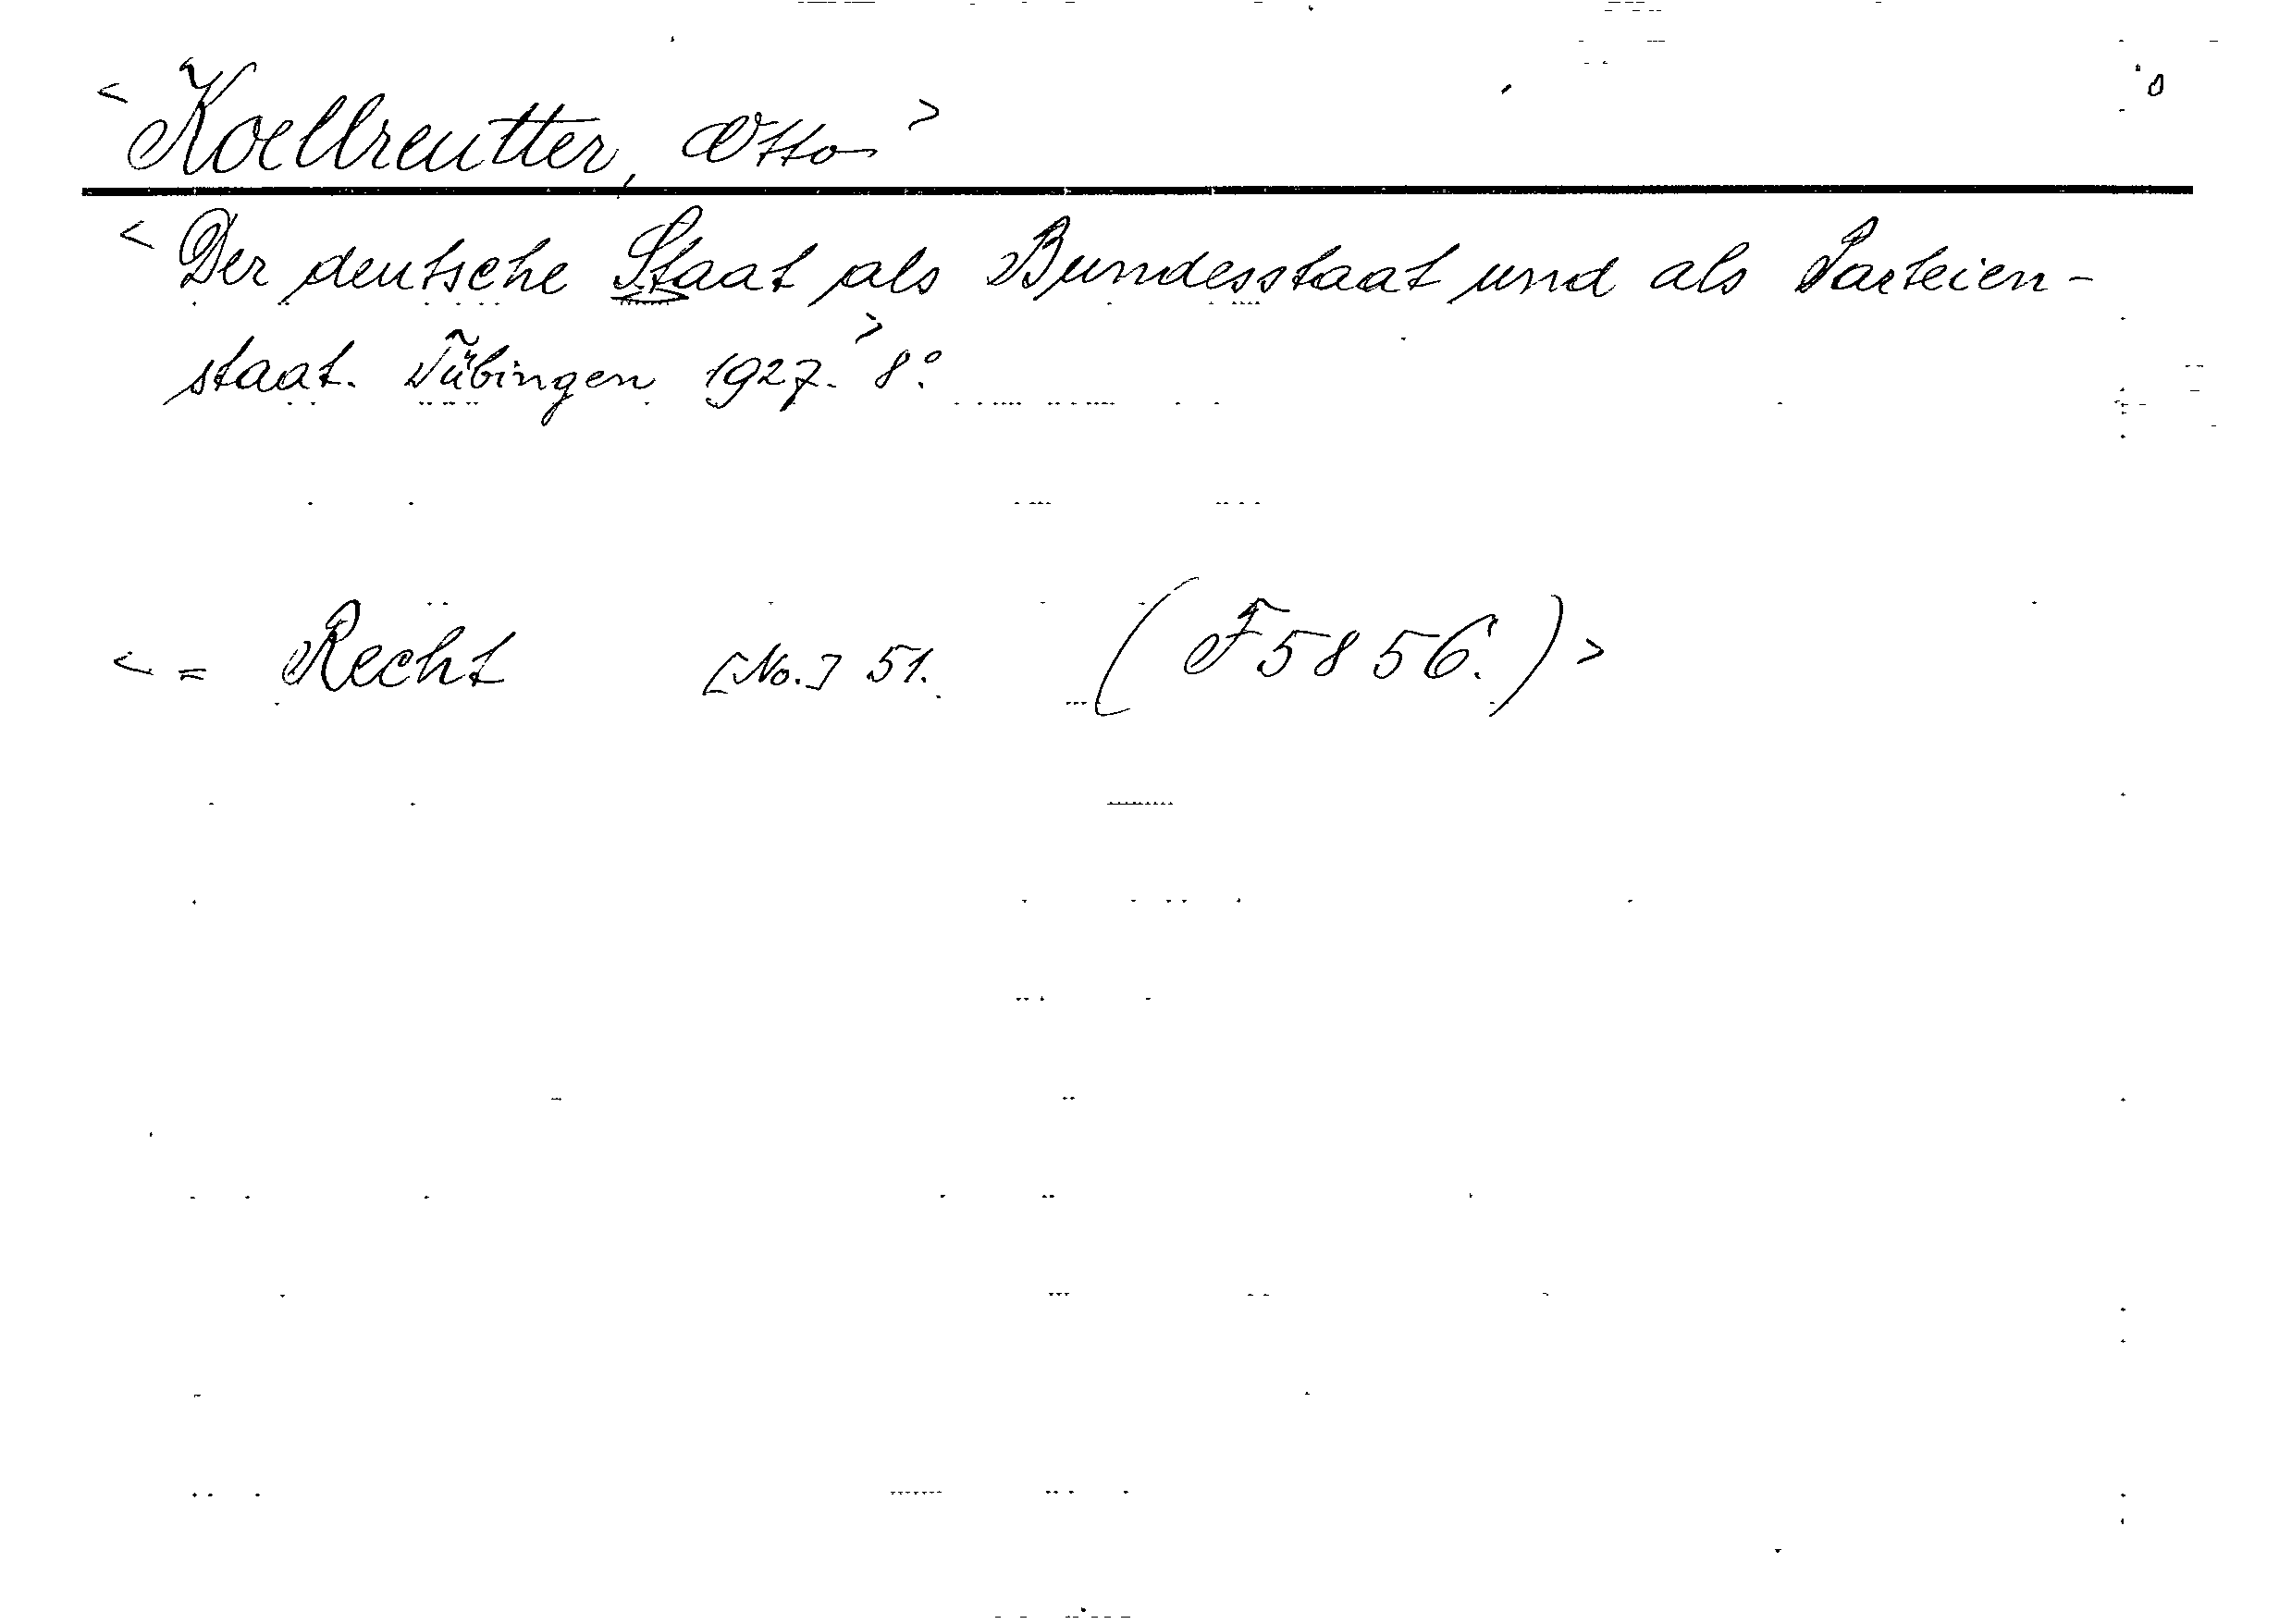 <Koellreutter, Otto>
<Der deutsche Staat als Bundesstaat und als Parteien-
staat. Tübingen 1927.> 8°.
<= Recht [No.] 51. (F 5856.)>